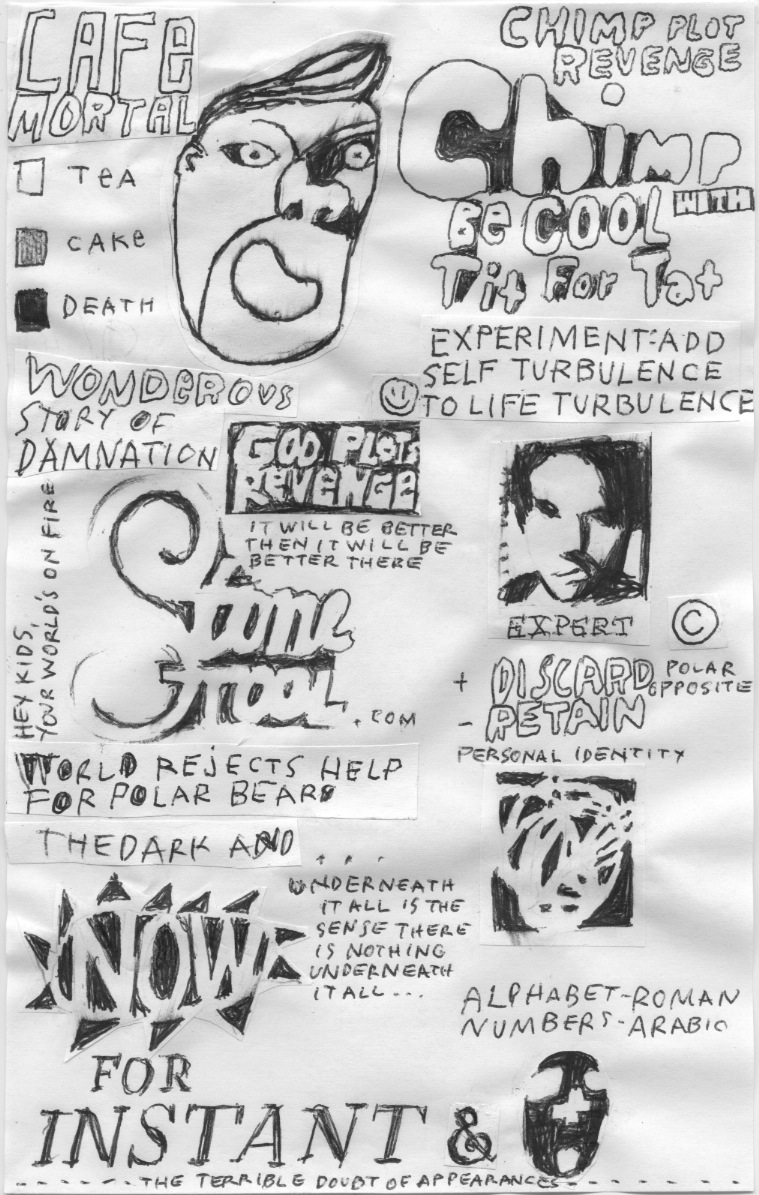 CAFE
MORTAL
TeA
CAKe
DEATH
CHIMP PLOT
REVENGE
Chimp
Be COOL WITH
Tit For Tat
EXPERIMENT:ADD
SELF TURBULENCE
TO LIFE TURBULENCE
WONDEROUS
STORY OF
DAMNATION
GOD PLOTS
REVENGE
IT WILL BE BETTER
THEN IT WILL BE
BETTER THERE
HEY KIDS,
YOUR WORLD'S ON FIRE
Stone
Stool
.COM
EXPERT
©
+ DISCARD POLAR
OPPOSITE
- RETAIN
PERSONAL IDENTITY
WORLD REJECTS HELP
FOR POLAR BEARS
THE DARK AND
...
NOW
UNDERNEATH
IT ALL IS THE
SENSE THERE
IS NOTHING
UNDERNEATH
IT ALL...
ALPHABET-ROMAN
NUMBERS-ARABIC
FOR
INSTANT &
THE TERRIBLE DOUBT OF APPEARANCES